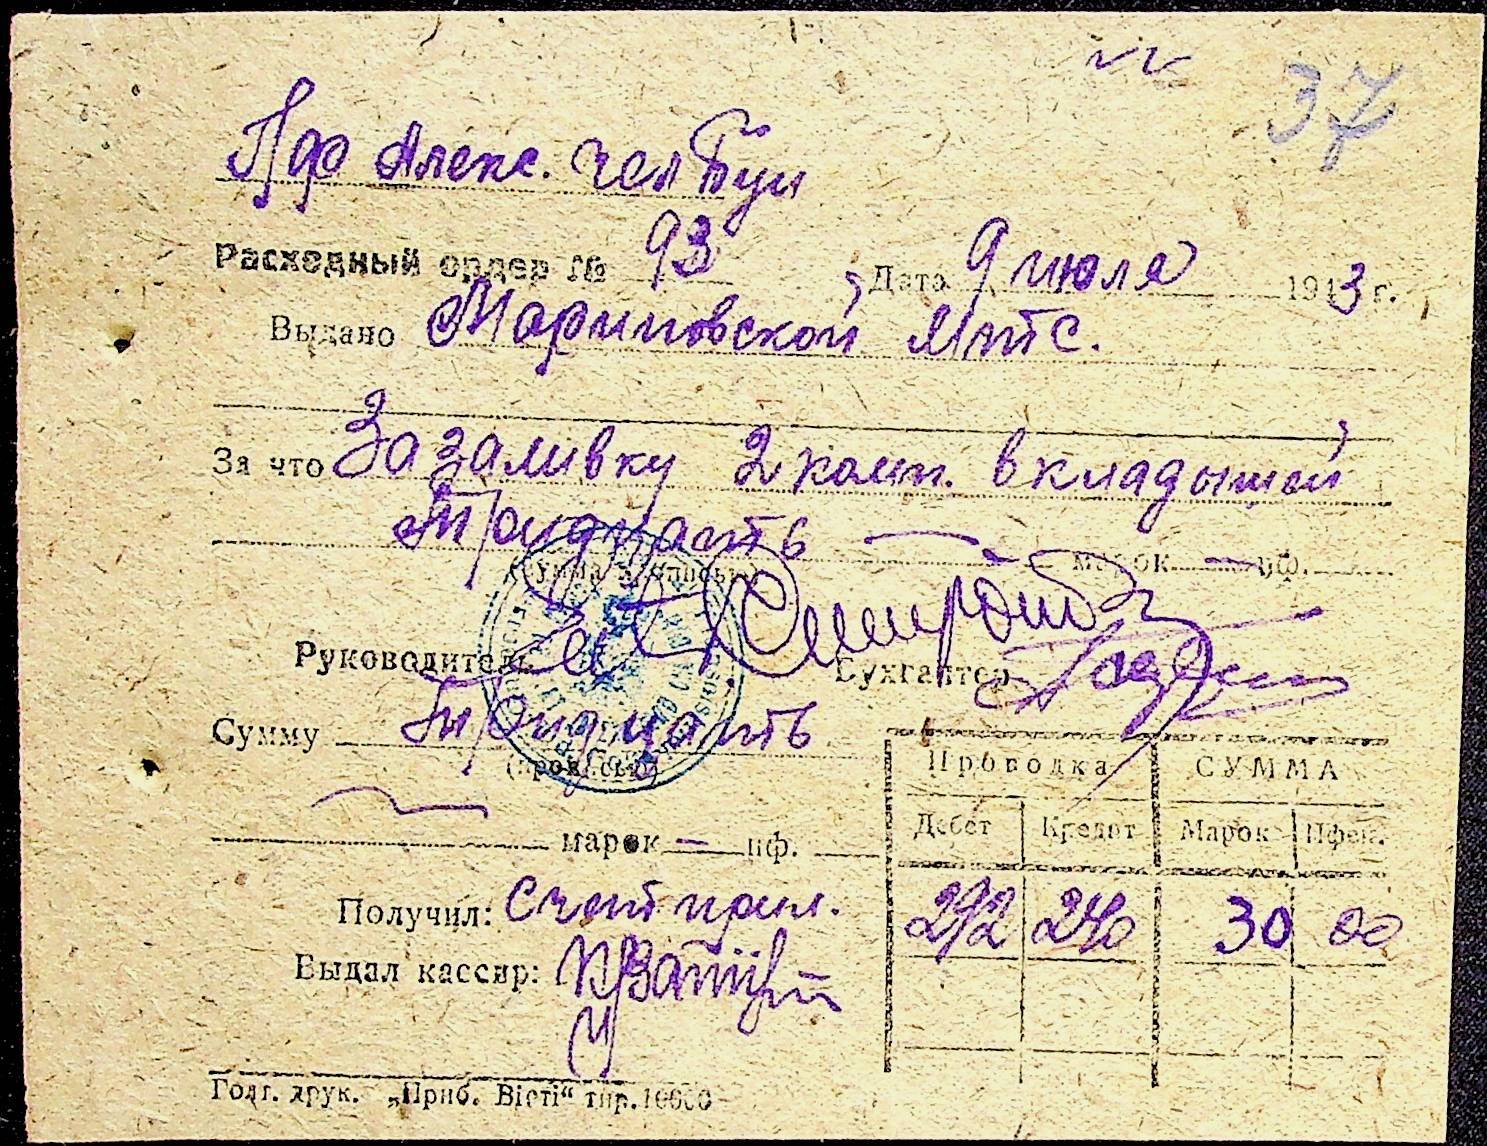 37
Алекс.
Расходный ордер № 93 Дата 9 июля 1943 г.
Выдано Мариновской Мтс.
За что За заливку 2 комп. вкладышей
Тридцать — марок — пф.
(сумма прописью)
Руководитель Бухгалтер
Сумму Тридцать
(прописью)
марок — пф.
Проводка СУММА
Дебет Кредит Марок Пфен.
292 240 30 00
Получил: Счет прил.
Выдал кассир:
Голт. друк. „Приб. Вісті“ тир. 10000